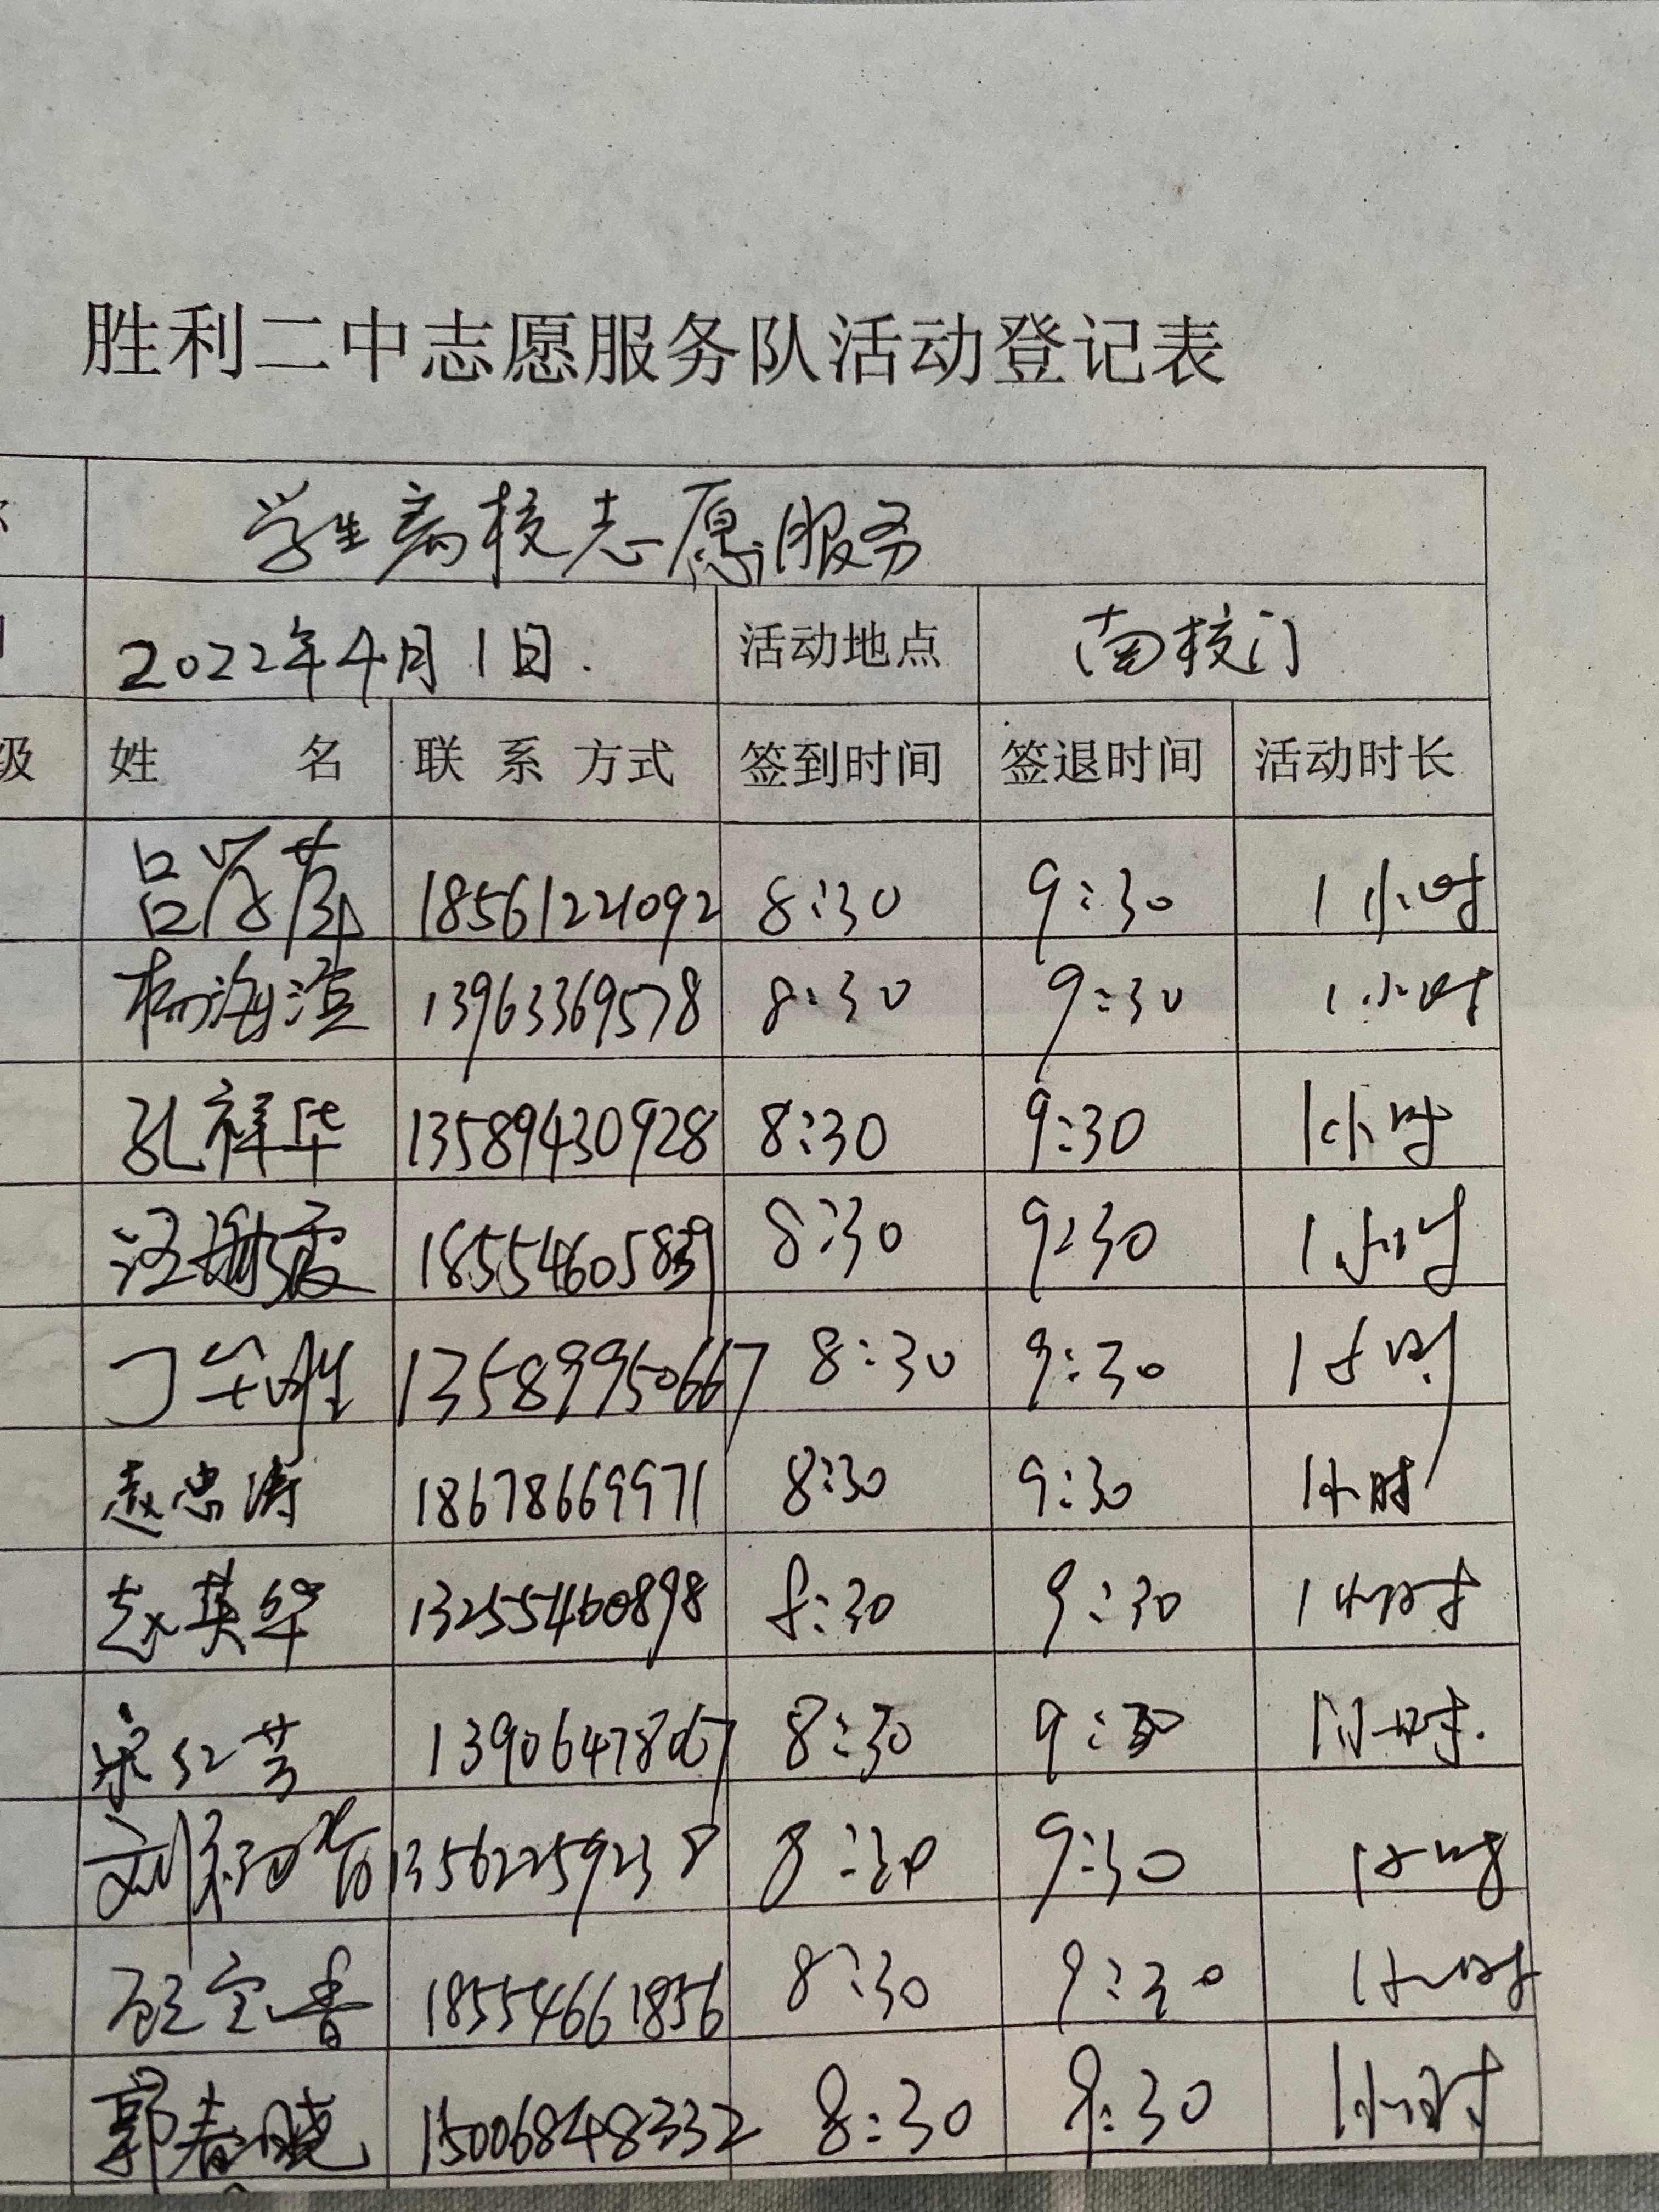 胜利二中志愿服务队活动登记表
学生离校志愿服务
2022年4月1日. 活动地点 南校门
级 姓 名 联系方式 签到时间 签退时间 活动时长
18561221092 8:30 9:30 1小时
杨海滢 13963369578 8:30 9:30 1小时
孔祥华 13589430928 8:30 9:30 1小时
汪 霞 18554605839 8:30 9:30 1小时
丁华胜 13589950667 8:30 9:30 1小时
赵忠涛 18678669971 8:30 9:30 1小时
赵英华 13255460898 8:30 9:30 1小时
宋红芳 8:30 9:30 1小时
刘 13562259238 8:30 9:30 1小时
宝善 18554661856 8:30 9:30 1小时
郭春晓 15006848332 8:30 9:30 1小时